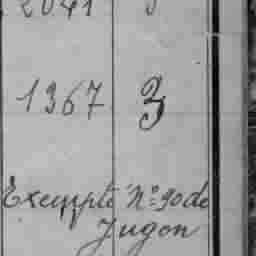 2041
1367 3
Exempté Nº 90 de
Jugon